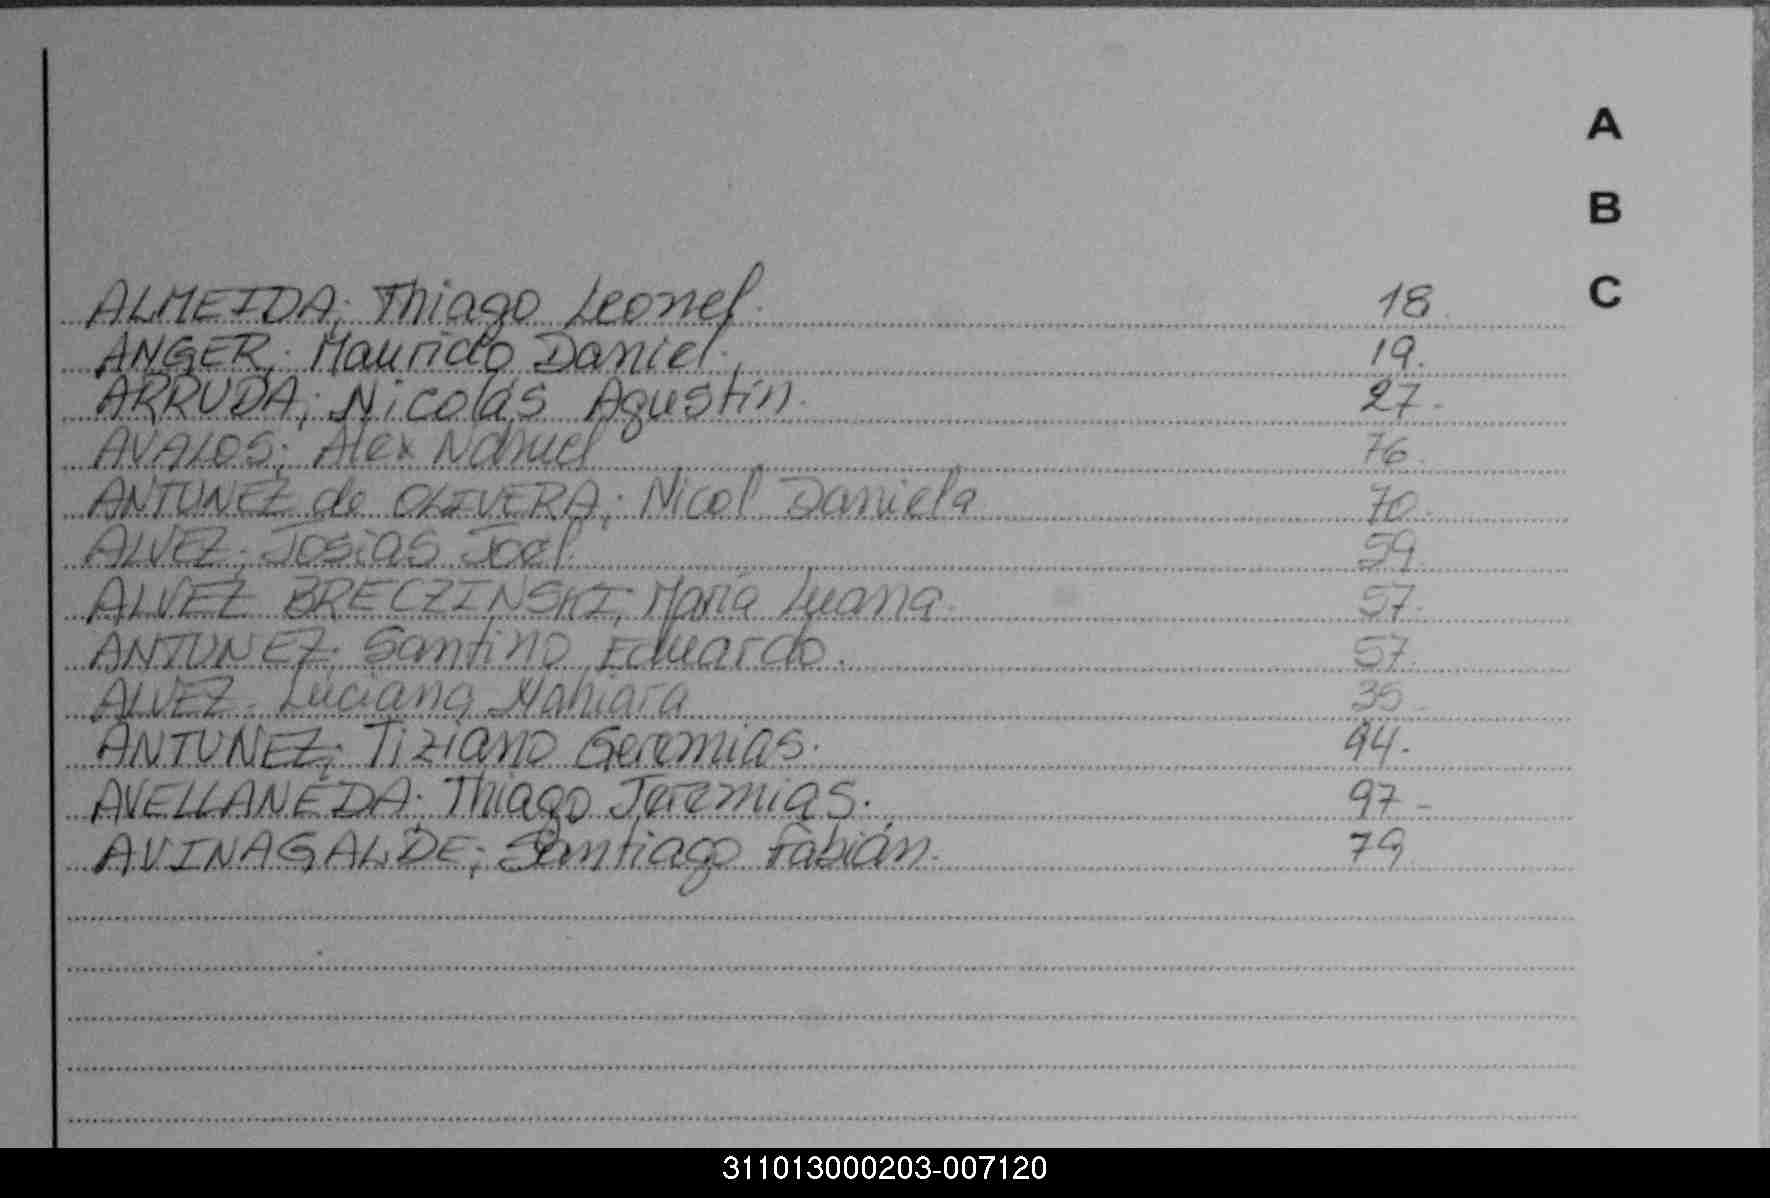 A
B
C
ALMEIDA; Thiago Leonel. 18.
ANGER; Mauricio Daniel. 19.
ARRUDA; Nicolás Agustín. 27.
AVALOS; Alex Nahuel 76.
ANTUNEZ de OLIVERA; Nicol Daniela 70.
ALVEZ; Josías Joel. 59.
ALVEZ BRECZINSKI; María Luana. 57.
ANTUNEZ; Santino Eduardo. 57.
ALVEZ; Luciana Nahiara 35.
ANTUNEZ; Tiziano Geremias. 94.
AVELLANEDA; Thiago Jeremías. 97.
AVINAGALDE; Santiago Fabián. 79.
311013000203-007120